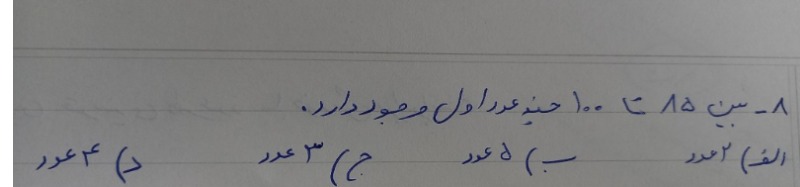 ۸- بین ۸۵ تا ۱۰۰ چند عدد اول وجود دارد.
الف) ۲ عدد ب) ۵ عدد ج) ۳ عدد د) ۴ عدد